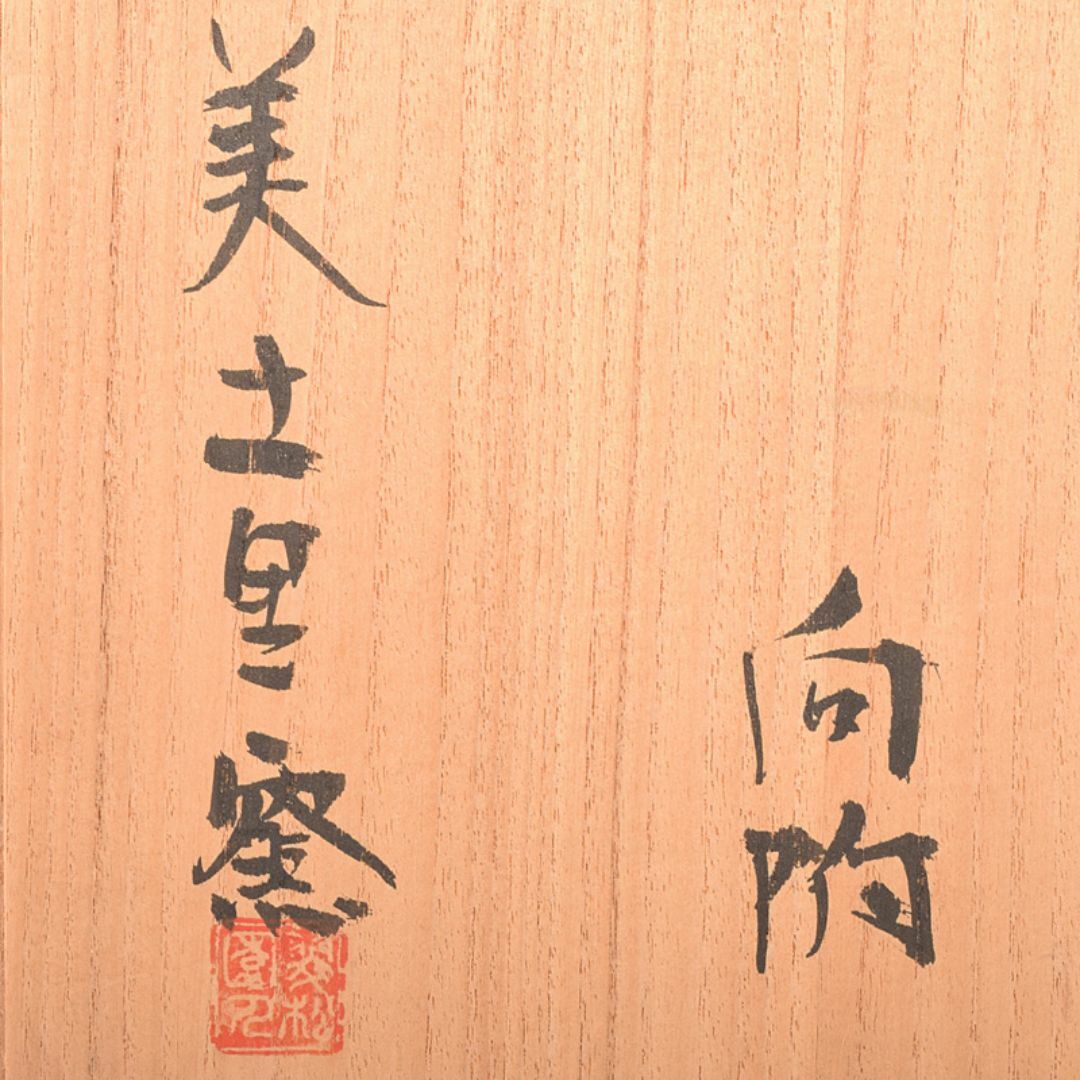 向附
美土里窯